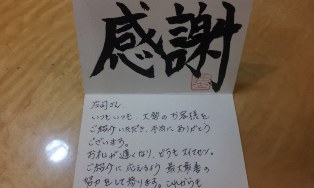 感謝
いつもいつも 大勢のお客様を
ご紹介いただき、本当にありがとう
ございます。
お礼が遅くなり、どうもすみません。
ご紹介に応えるよう 最大最善の
努力をして参ります。これからも